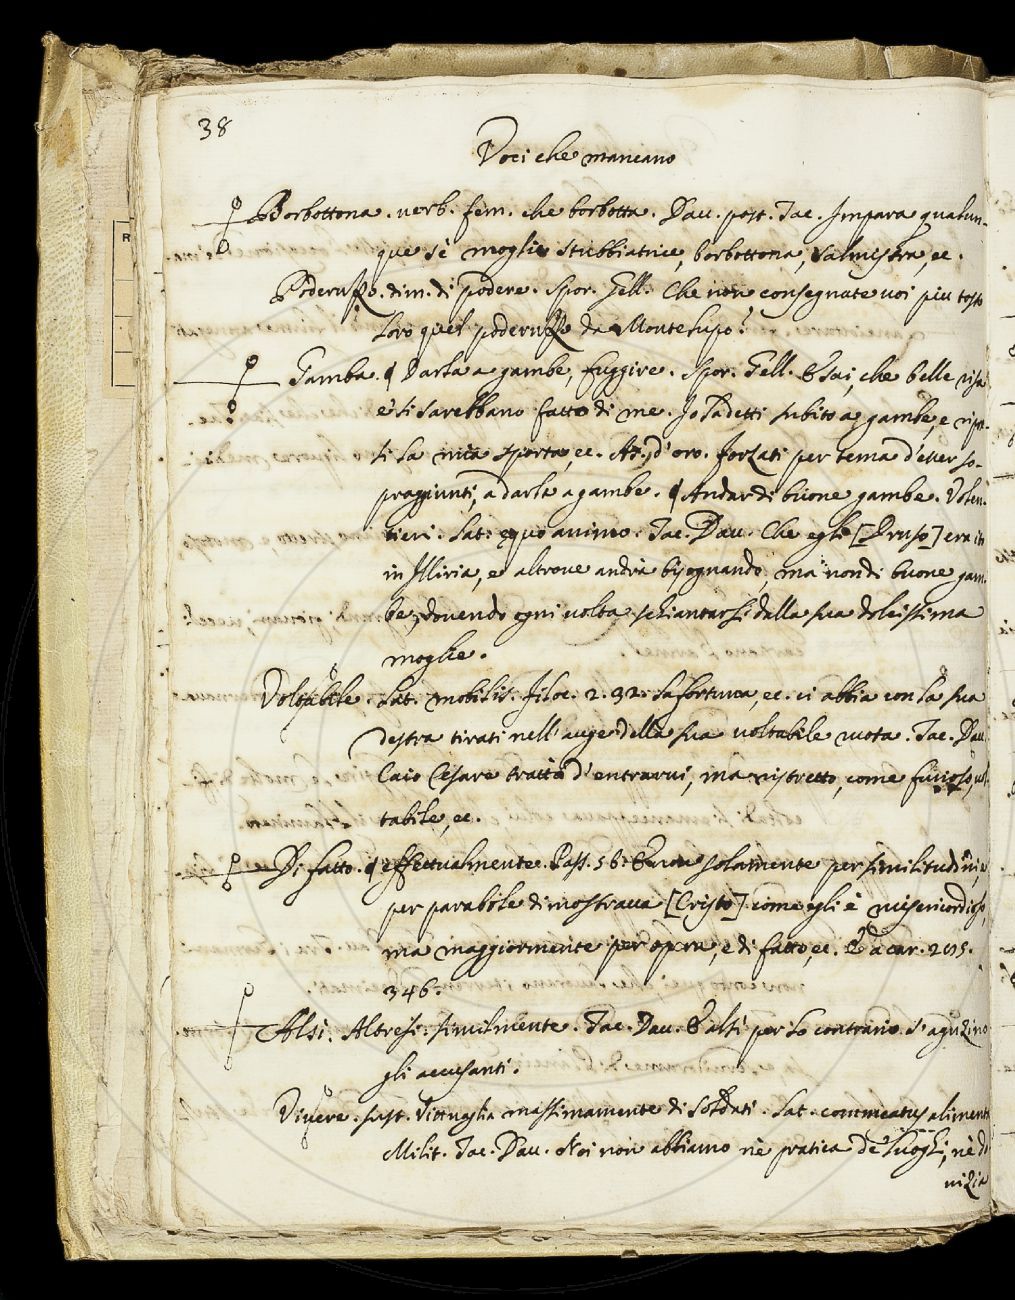 38
Voci che mancano
Borbottona. verb. fem. che borbotta. Dav. post. Tac. Impara qualun-
que se' moglie stubbiatrice, borbottona, salmistra, ec.
Poderuzzo. dim. di podere. Spor. Gell. Che non consegnate voi più tosto
loro quel poderuzzo da Montelupo?
Gamba. ¶ Darla a gambe, fuggire. Spor. Gell. E sai, che belle risa
e' si sarebbano fatto di me. Io la detti subito a gambe, e
si la mia sporta, ec. As. d'oro. Forzati per tema d'esser so-
praggiunti, a darla a gambe. ¶ Andar di buone gambe. Volen-
tieri. Lat. ęquo animo. Tac. Dav. Che egli [Druso] era ito
in Illiria, e altrove andrà bisognando, ma non di buone gam-
be, dovendo ogni volta schiantarsi dalla sua dolcissima
moglie.
Voltabile. Lat. mobilis. Filoc. 2. 32. La fortuna, ec. ci abbia con la sua
destra tirati nell'auge della sua voltabile ruota. Tac. Dav.
Caio Cesare trattò d'entrarvi, ma ristretto, come furioso, vol-
tabile, ec.
Di fatto. ¶ effettualmente. Pass. 56. E non solamente per similitudini, e
per parabole dimostrava [Cristo] come egli è misericordioso,
ma maggiormente per opera, e di fatto, ec. E a car.
346.
Alsì. Altresì. similmente. Tac. Dav. E alsì per lo contrario s'aguzino
gli accusanti.
Vivere. sust. Vittuaglia massimamente di soldati. Lat. commeatus alimenta
Milit. Tac. Dav. Noi non abbiamo nè pratica de' luoghi, nè do-
vizia